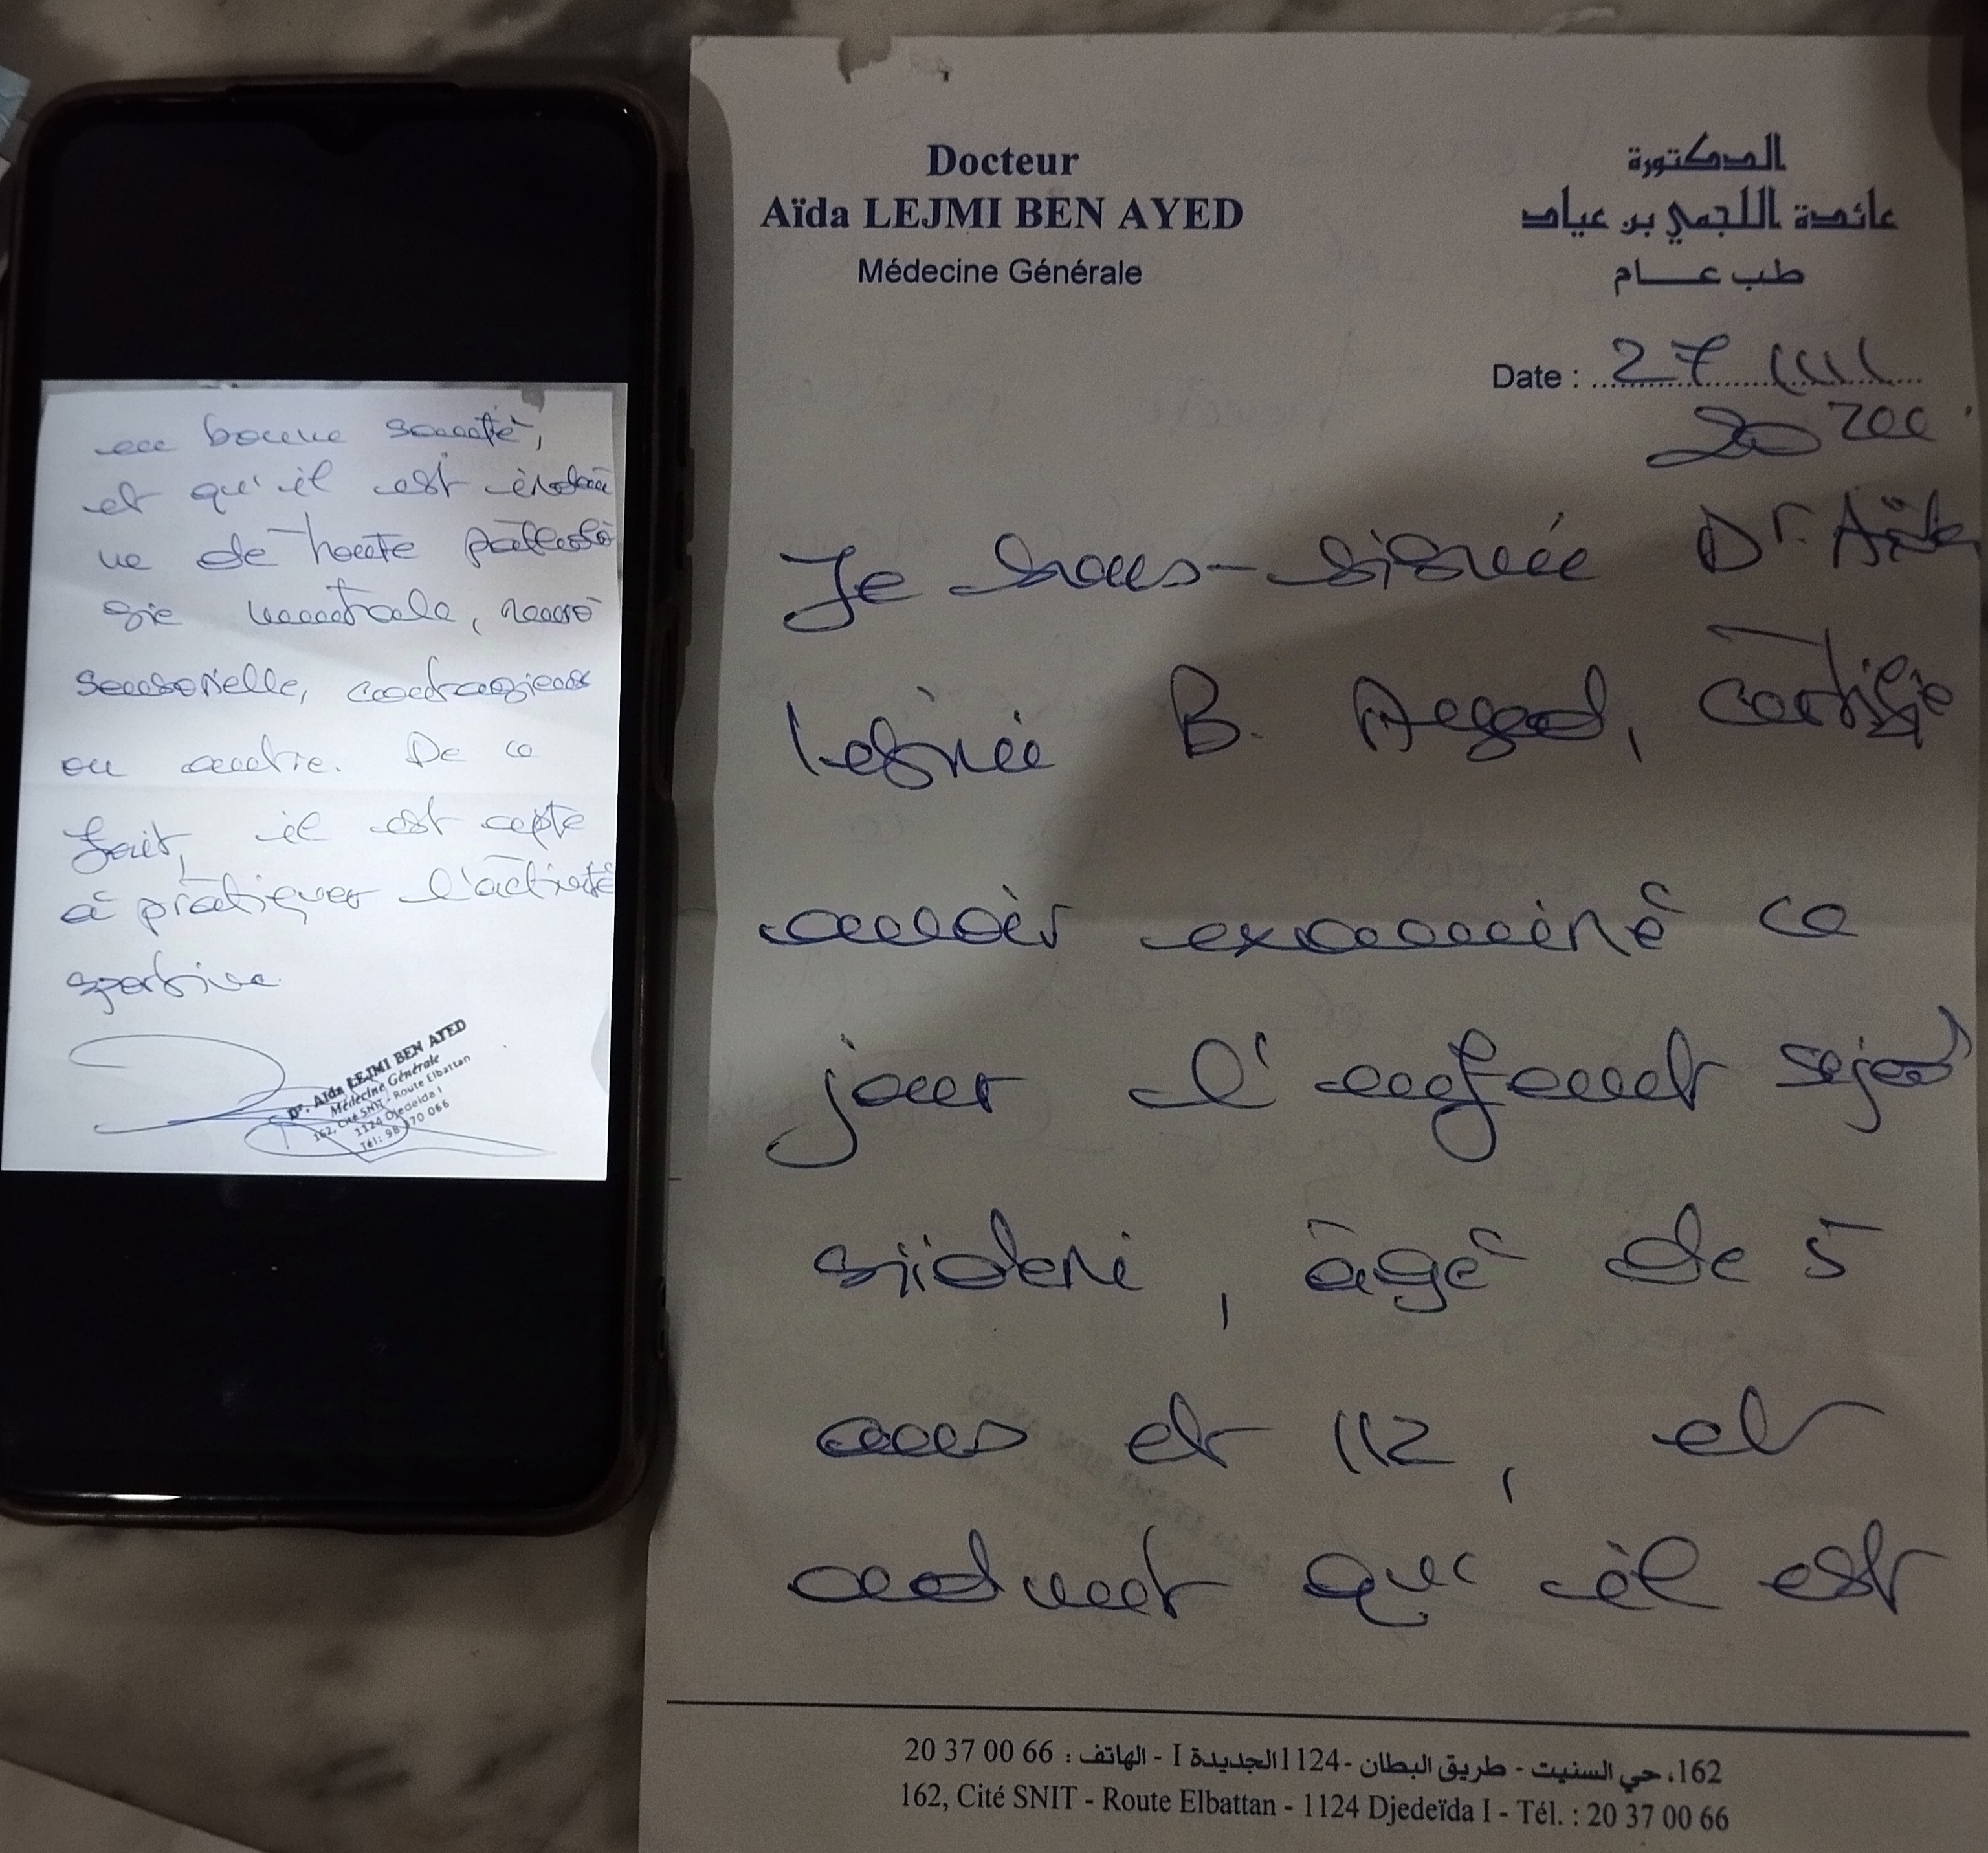 Docteur
Aïda LEJMI BEN AYED
Médecine Générale
الدكتورة
عائدة اللجمي بن عياد
طب عام
Date : 27
Je sous-signée Dr. Aïda
B. Ayed, certifie
avoir examiné ce
jour l'enfant sejed
âgé de 5
ans et 1/2, et
advent que il est
162، حي السنيت - طريق البطان -1124 الجديدة I - الهاتف : 66 00 37 20
162, Cité SNIT - Route Elbattan - 1124 Djedeïda I - Tél. : 20 37 00 66
en bonne santé,
et qu'il est indem
ne de toute patholo
gie mentale, neuro
sensorielle, contagieuse
ou autre. De ce
fait, il est apte
à pratiquer l'activité
sportive.
Dr. Aïda LEJMI BEN AYED
Médecine Générale
162, Cité SNIT - Route Elbattan
1124 Djedeida I
Tél: 98 070 066